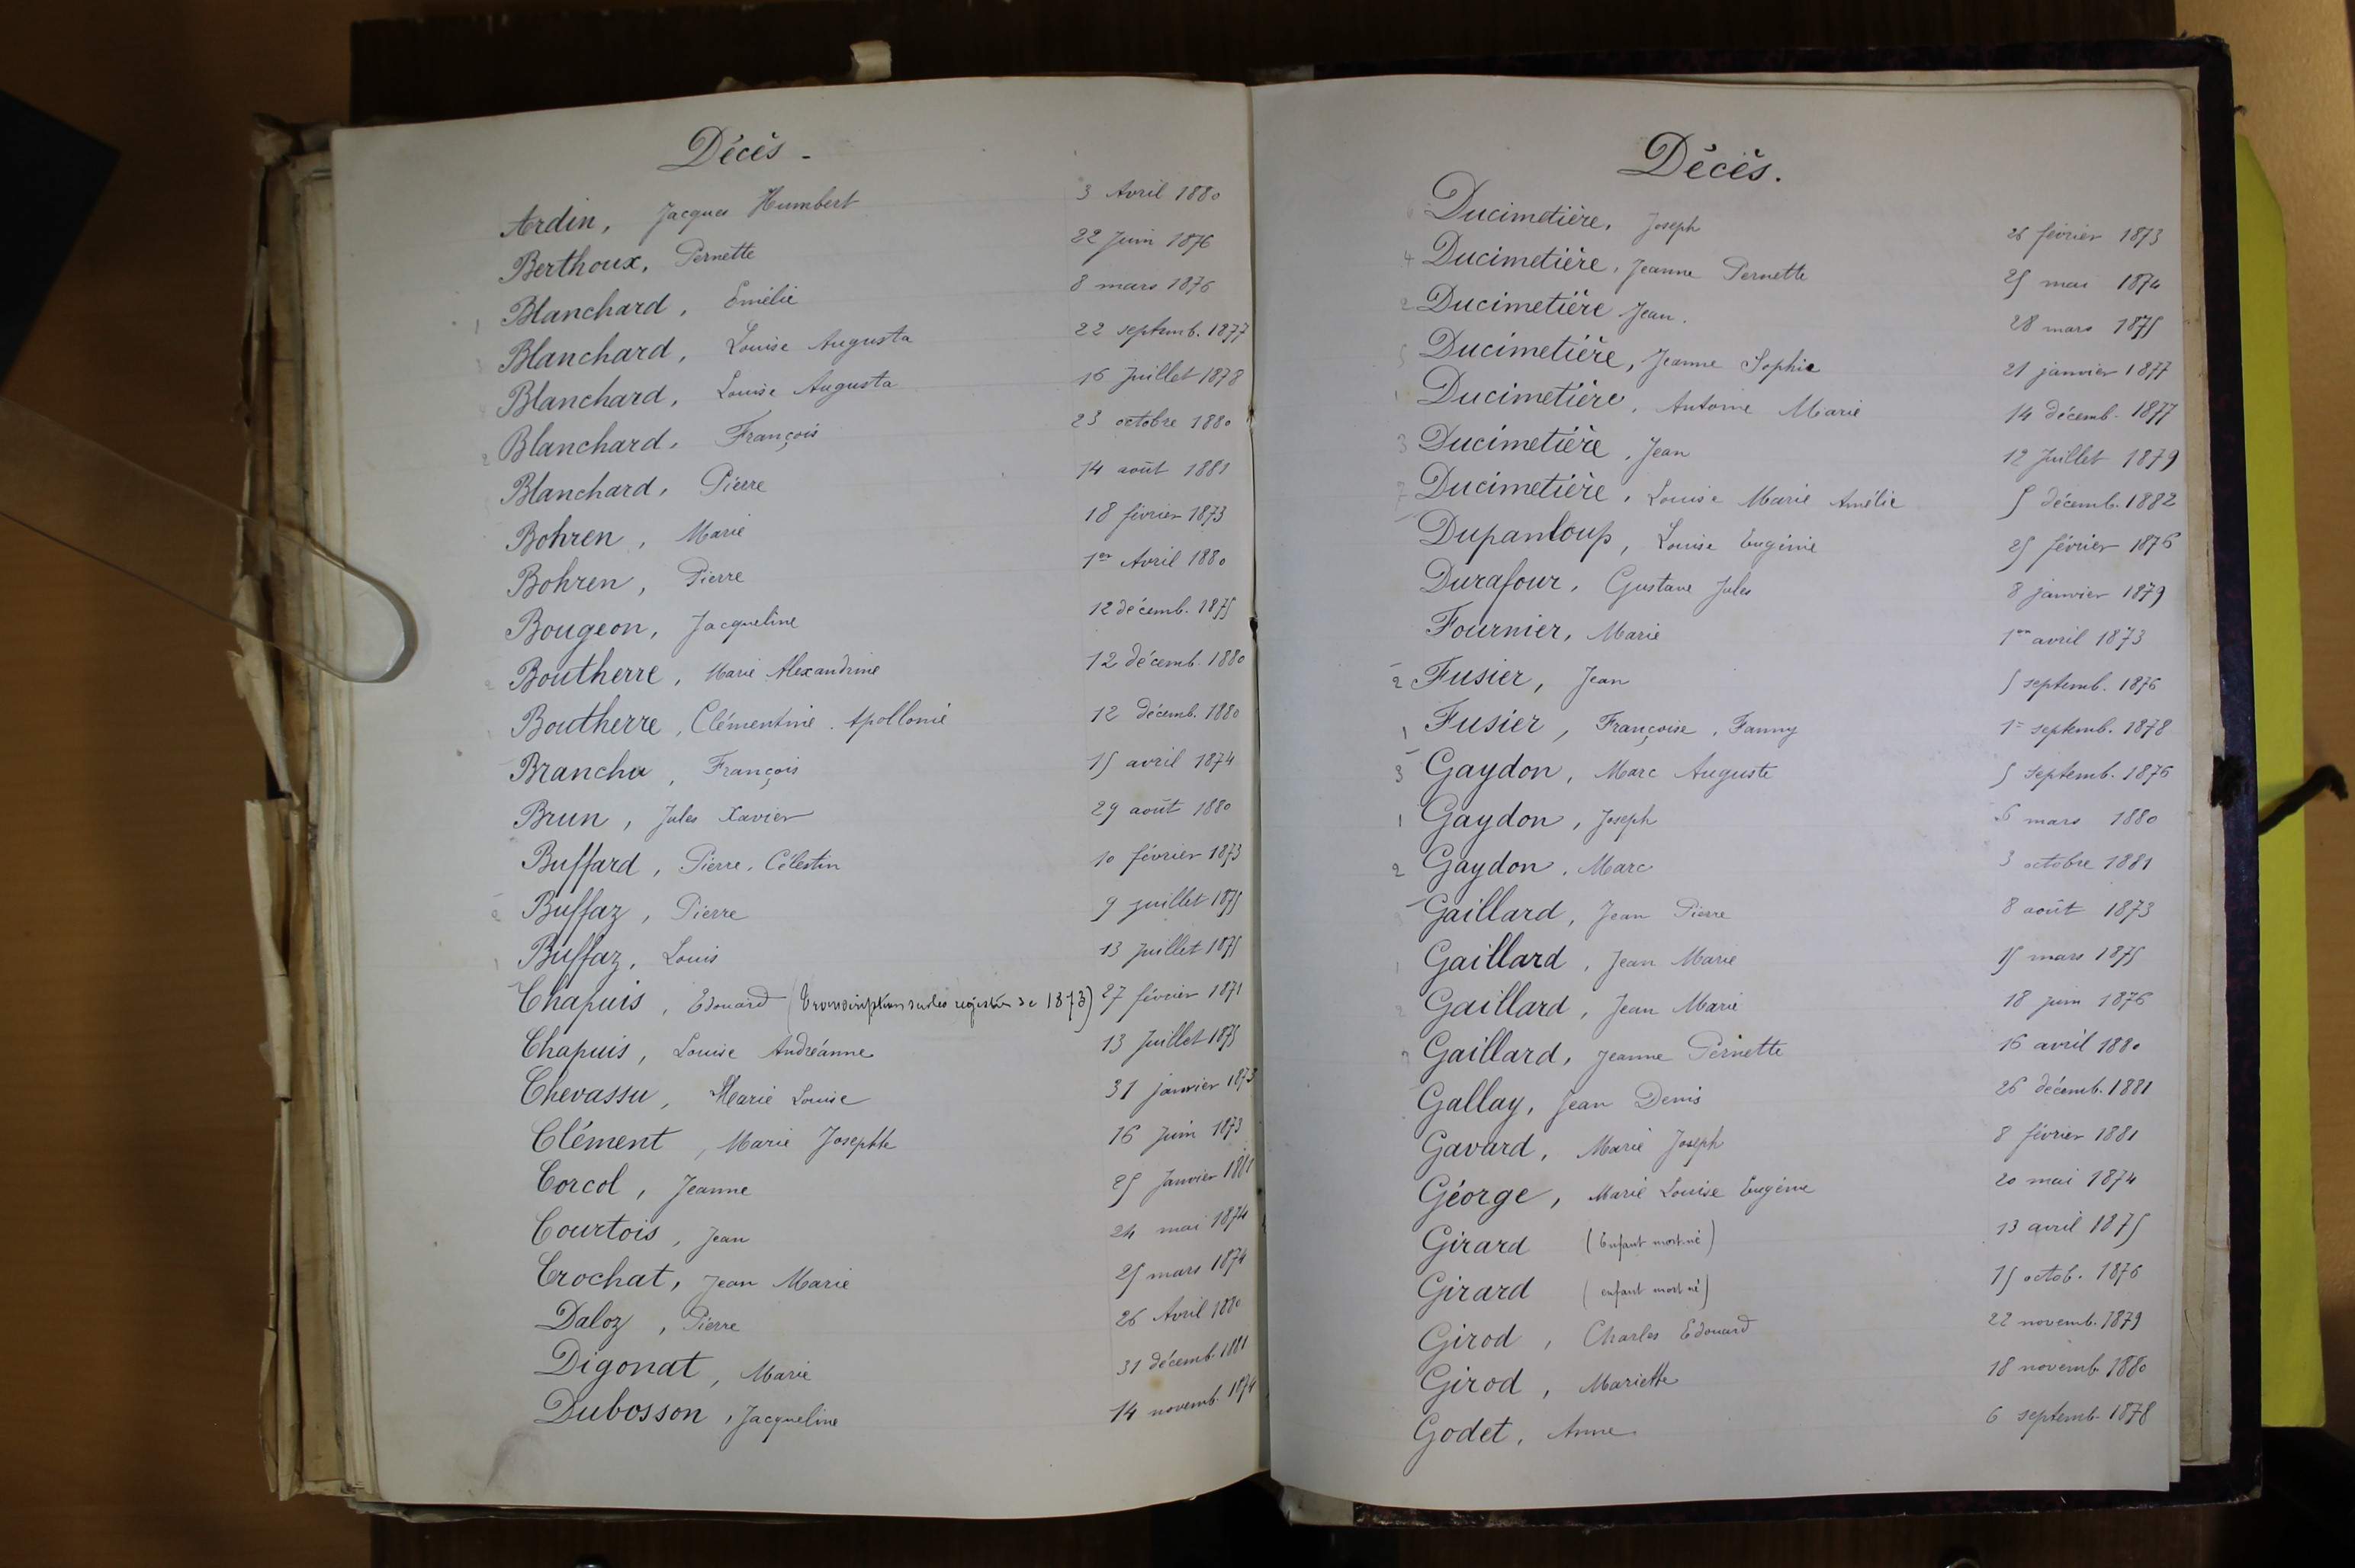 Décès -
Ardin, Jacques Humbert 3 Avril 1880
Berthoux, Pernette 22 Juin 1876
1 Blanchard, Emélie 8 mars 1876
Blanchard, Louise Augusta 22 septemb. 1877
Blanchard, Louise Augusta 16 Juillet 1878
2 Blanchard, François 23 octobre 1880
Blanchard, Pierre 14 août 1881
Bohren, Marie 18 février 1873
Bohren, Pierre 1er Avril 1880
Bougeon, Jacqueline 12 décemb. 1875
2 Boutherre, Marie Alexandrine 12 décemb. 1880
1 Boutherre, Clémentine. Apollonie 12 décemb. 1880
Branchu, François 15 avril 1874
Brun, Jules Xavier 29 août 1880
Buffard, Pierre, Célestin 10 février 1873
2 Buffaz, Pierre 9 juillet 1875
1 Buffaz, Louis 13 juillet 1875
Chapuis, Edouard (Transcription sur les registres de 1873) 27 février 1871
Chapuis, Louise Andréanne 13 Juillet 1875
Chevassu, Marie Louise 31 janvier 1873
Clément, Marie Josephte 16 Juin 1873
Corcol, Jeanne 25 Janvier 1881
Courtois, Jean 24 mai 1874
Crochat, Jean Marie 25 mars 1874
Daloz, Pierre 26 Avril 1880
Digonat, Marie 31 décemb. 1881
Dubosson, Jacqueline 14 novemb. 1874
Décès.
6 Ducimetière, Joseph 26 février 1873
4 Ducimetière, Jeanne Pernette 25 mai 1874
2 Ducimetière Jean. 28 mars 1875
5 Ducimetière, Jeanne Sophie 21 janvier 1877
1 Ducimetière, Antoine Marie 14 décemb. 1877
3 Ducimetière, Jean 12 Juillet 1879
7 Ducimetière, Louise Marie Amélie 5 décemb. 1882
Dupanloup, Louise Eugénie 25 février 1876
Durafour, Gustave Jules 8 janvier 1879
Fournier, Marie 1er avril 1873
2 Fusier, Jean 5 septemb. 1876
1 Fusier, Françoise, Fanny 1er septemb. 1878
3 Gaydon, Marc Auguste 5 septemb. 1876
1 Gaydon, Joseph 6 mars 1880
2 Gaydon, Marc 3 octobre 1881
Gaillard, Jean Pierre 8 août 1873
1 Gaillard, Jean Marie 15 mars 1875
2 Gaillard, Jean Marie 18 juin 1876
Gaillard, Jeanne Pernette 16 avril 1880
Gallay, Jean Denis 26 décemb. 1881
Gavard, Marie Joseph 8 février 1881
Géorge, Marie Louise Eugénie 20 mai 1874
Girard (Enfant mort né) 13 avril 1875
Girard (enfant mort né) 15 octob. 1876
Girod, Charles Edouard 22 novemb. 1879
Girod, Mariette 18 novemb 1880
Godet, Anne 6 septemb. 1878